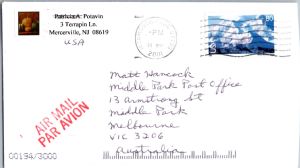 Patricia A. Potavin
3 Terrapin Ln.
Mercerville, NJ 08619
USA
PM
2001
80
Matt Hancock
Middle Park Post Office
13 Armstrong St
Middle Park
Melbourne
VIC 3206
Australia
AIR MAIL
PAR AVION
00194/3000